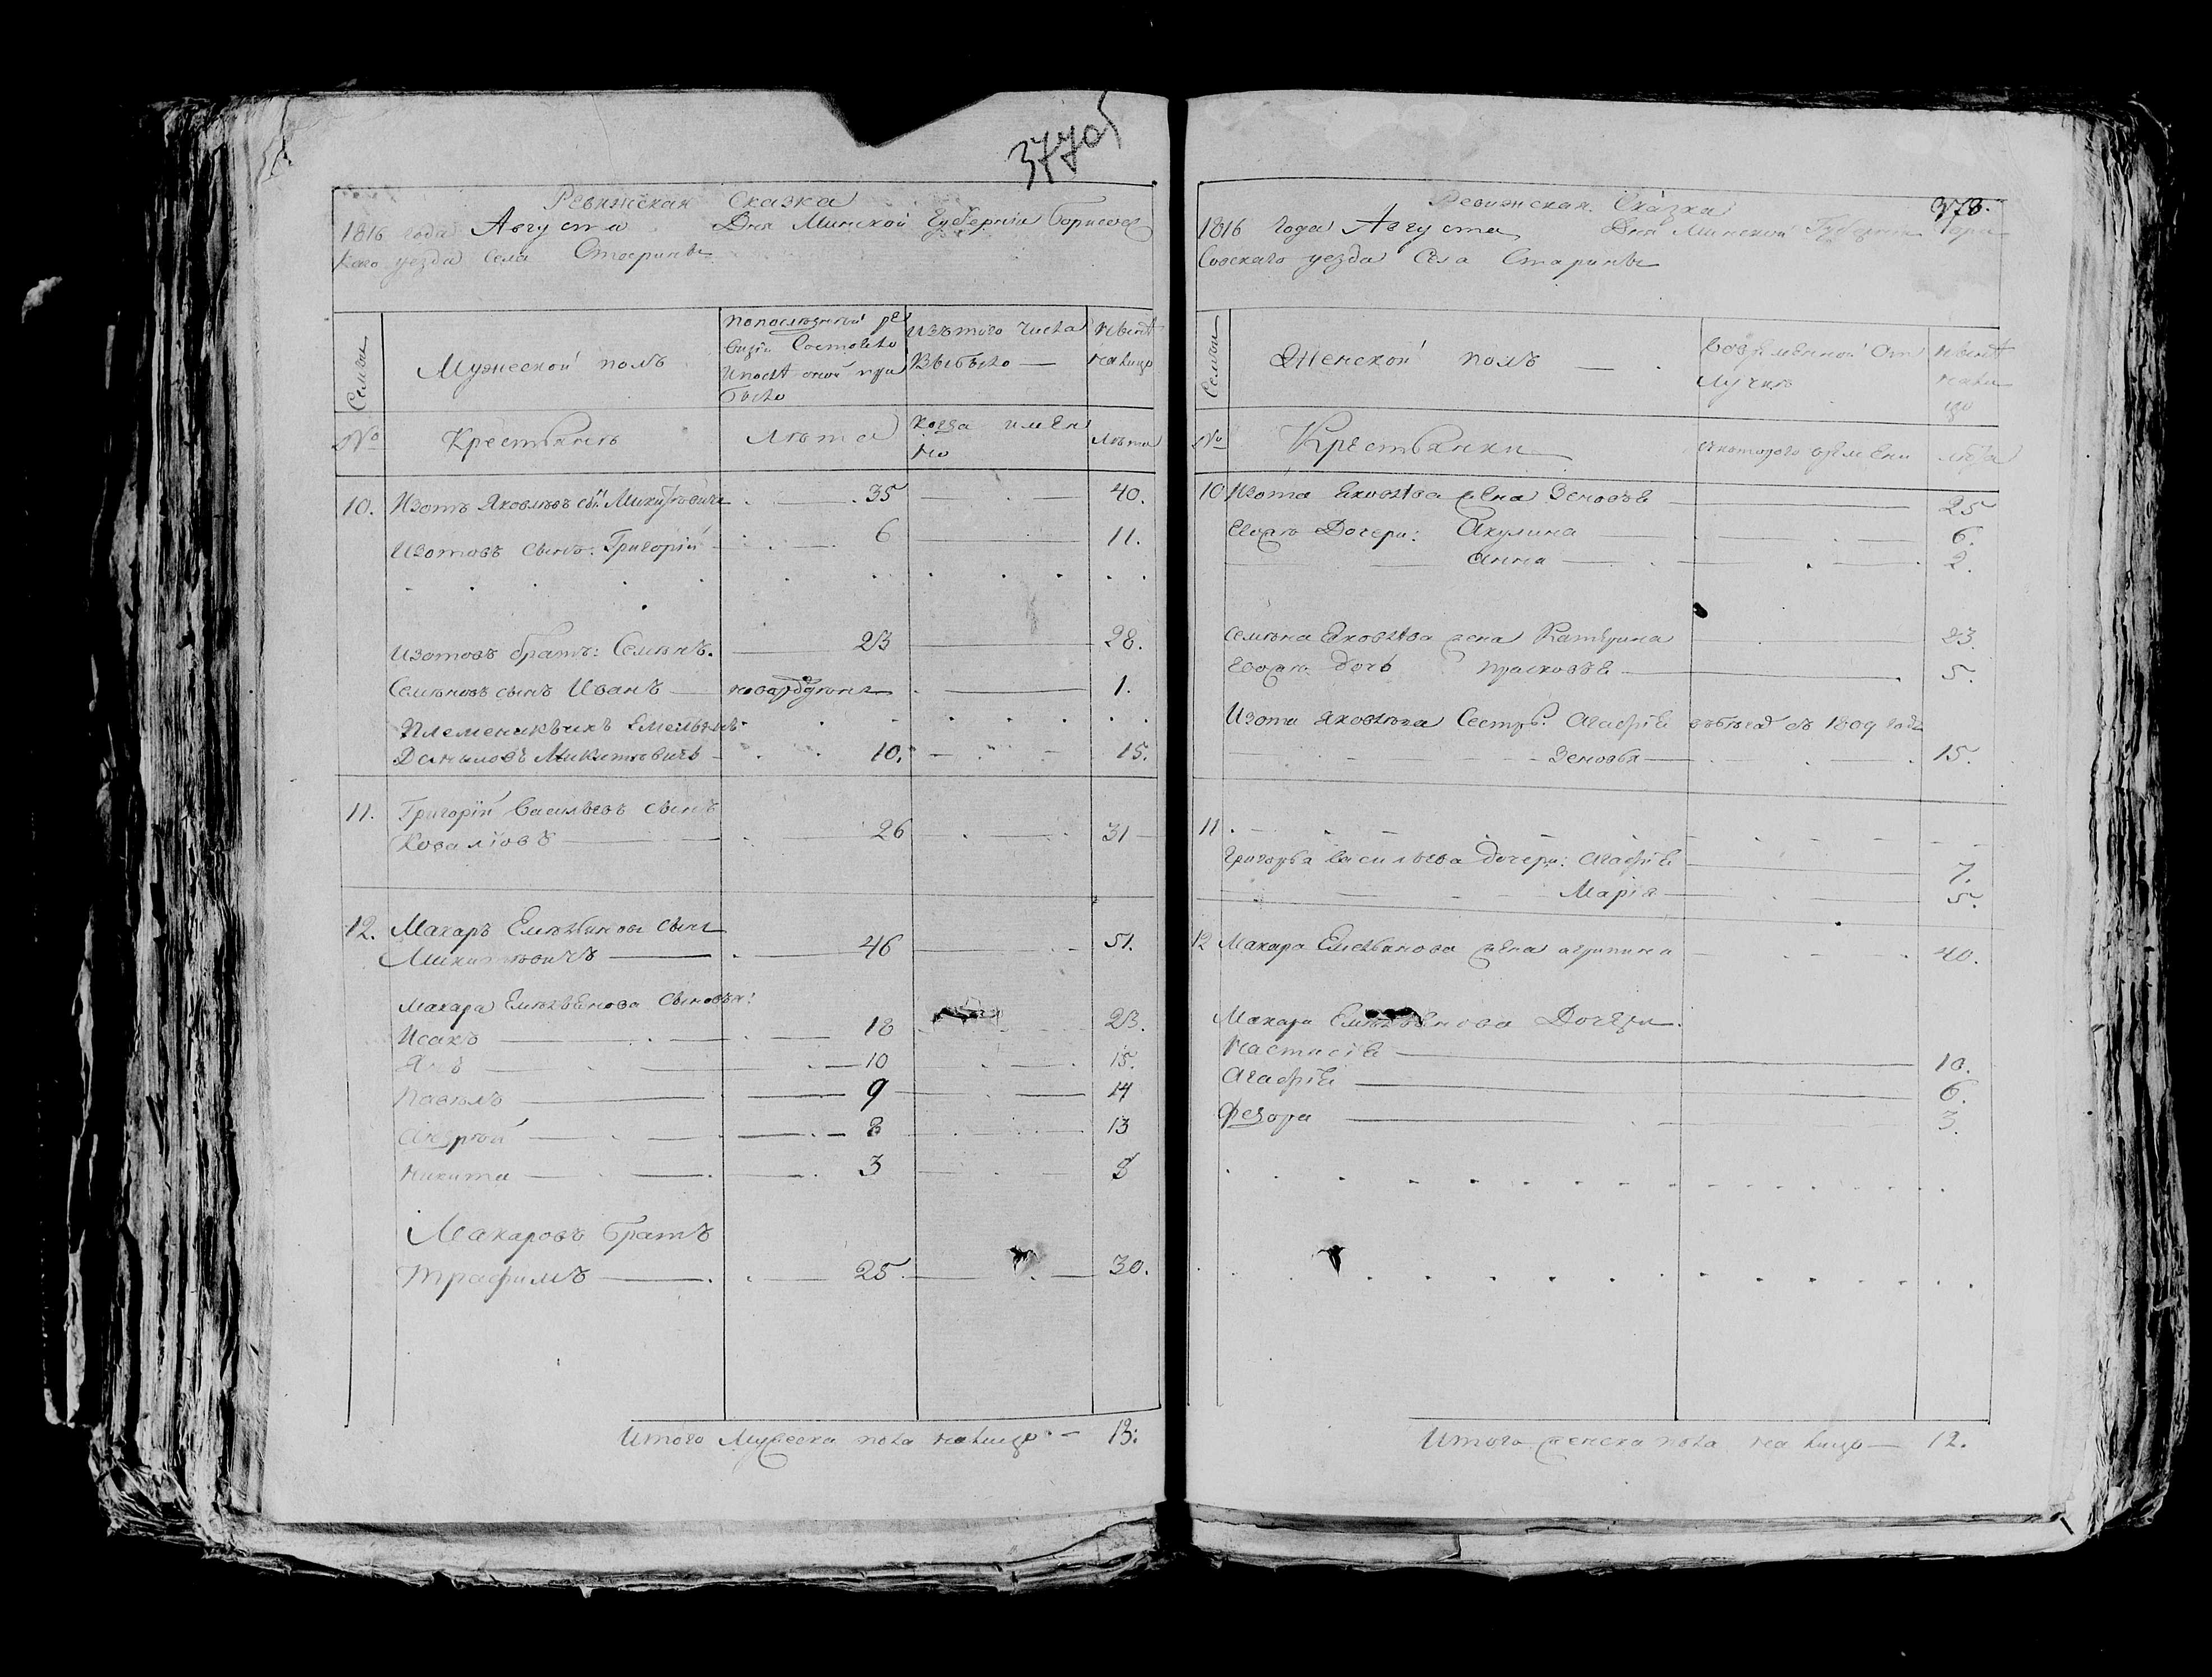 377об
Ревижская Сказка
1816 года Августа Дня Минской Губерніи Борисовс
каго уезда Села Старины
Семьи
Мужеской полъ
Попослѣдней ре
визіи Состояло
Ипослѣ оной при
было
Изътого числа
Выбыло —
Нынѣ
налицо
№
Крестьянѣ
лѣта
Когда имян
но
лѣта
10. Изотъ Яковлевъ сынъ Микитовичъ 35 40.
Изотовъ сынъ: Григорій 6 11.
Изотовъ братъ: Семѣнъ. 23 28.
Семѣновъ сынъ Иванъ 1.
Племеникъ Емельянъ
Даниловъ Микитовичъ 10. 15.
11. Григорій Васильевъ сынъ
Коваліовъ 26 31
12. Макаръ Емельяновъ сынъ
Микитовичъ 46 51.
Макара Емельянова сыновья:
Исакъ 18 23.
10 15.
Павѣлъ 9 14
Андрѣй 8 13
Никита 3 8
Макаровъ братъ
Трафимъ 25 30.
Итого Мужеска пола налицо — 13:
378.
Ревижская Сказка
1816 Года Августа Дня Минской Губерніи Бори
совскаго уезда Села Старины
Семьи
Женской полъ —
Вовременной От
лучкѣ
Нынѣ
нали
цо
№
Крестьянки
скотораго времени
лѣта
10 Изота Яковлева жена Зеновья 25
Евоже Дочери: Акулина 6.
Анна 2.
Семѣна Яковлева жена Катерина 23.
Евоже дочь Прасковья 5.
Изота Яковлева Сестры: Агафія въ 1809 годе
Зеновья 15.
11.
Григорья Васильева дочери: Агафія 7.
Марія 5.
12 Макара Емельянова жена агрипина 40.
Макара Емельянова Дочери.
Настасія 10.
Агафія 6.
Федора 3.
Итого женска пола на лицо — 12.